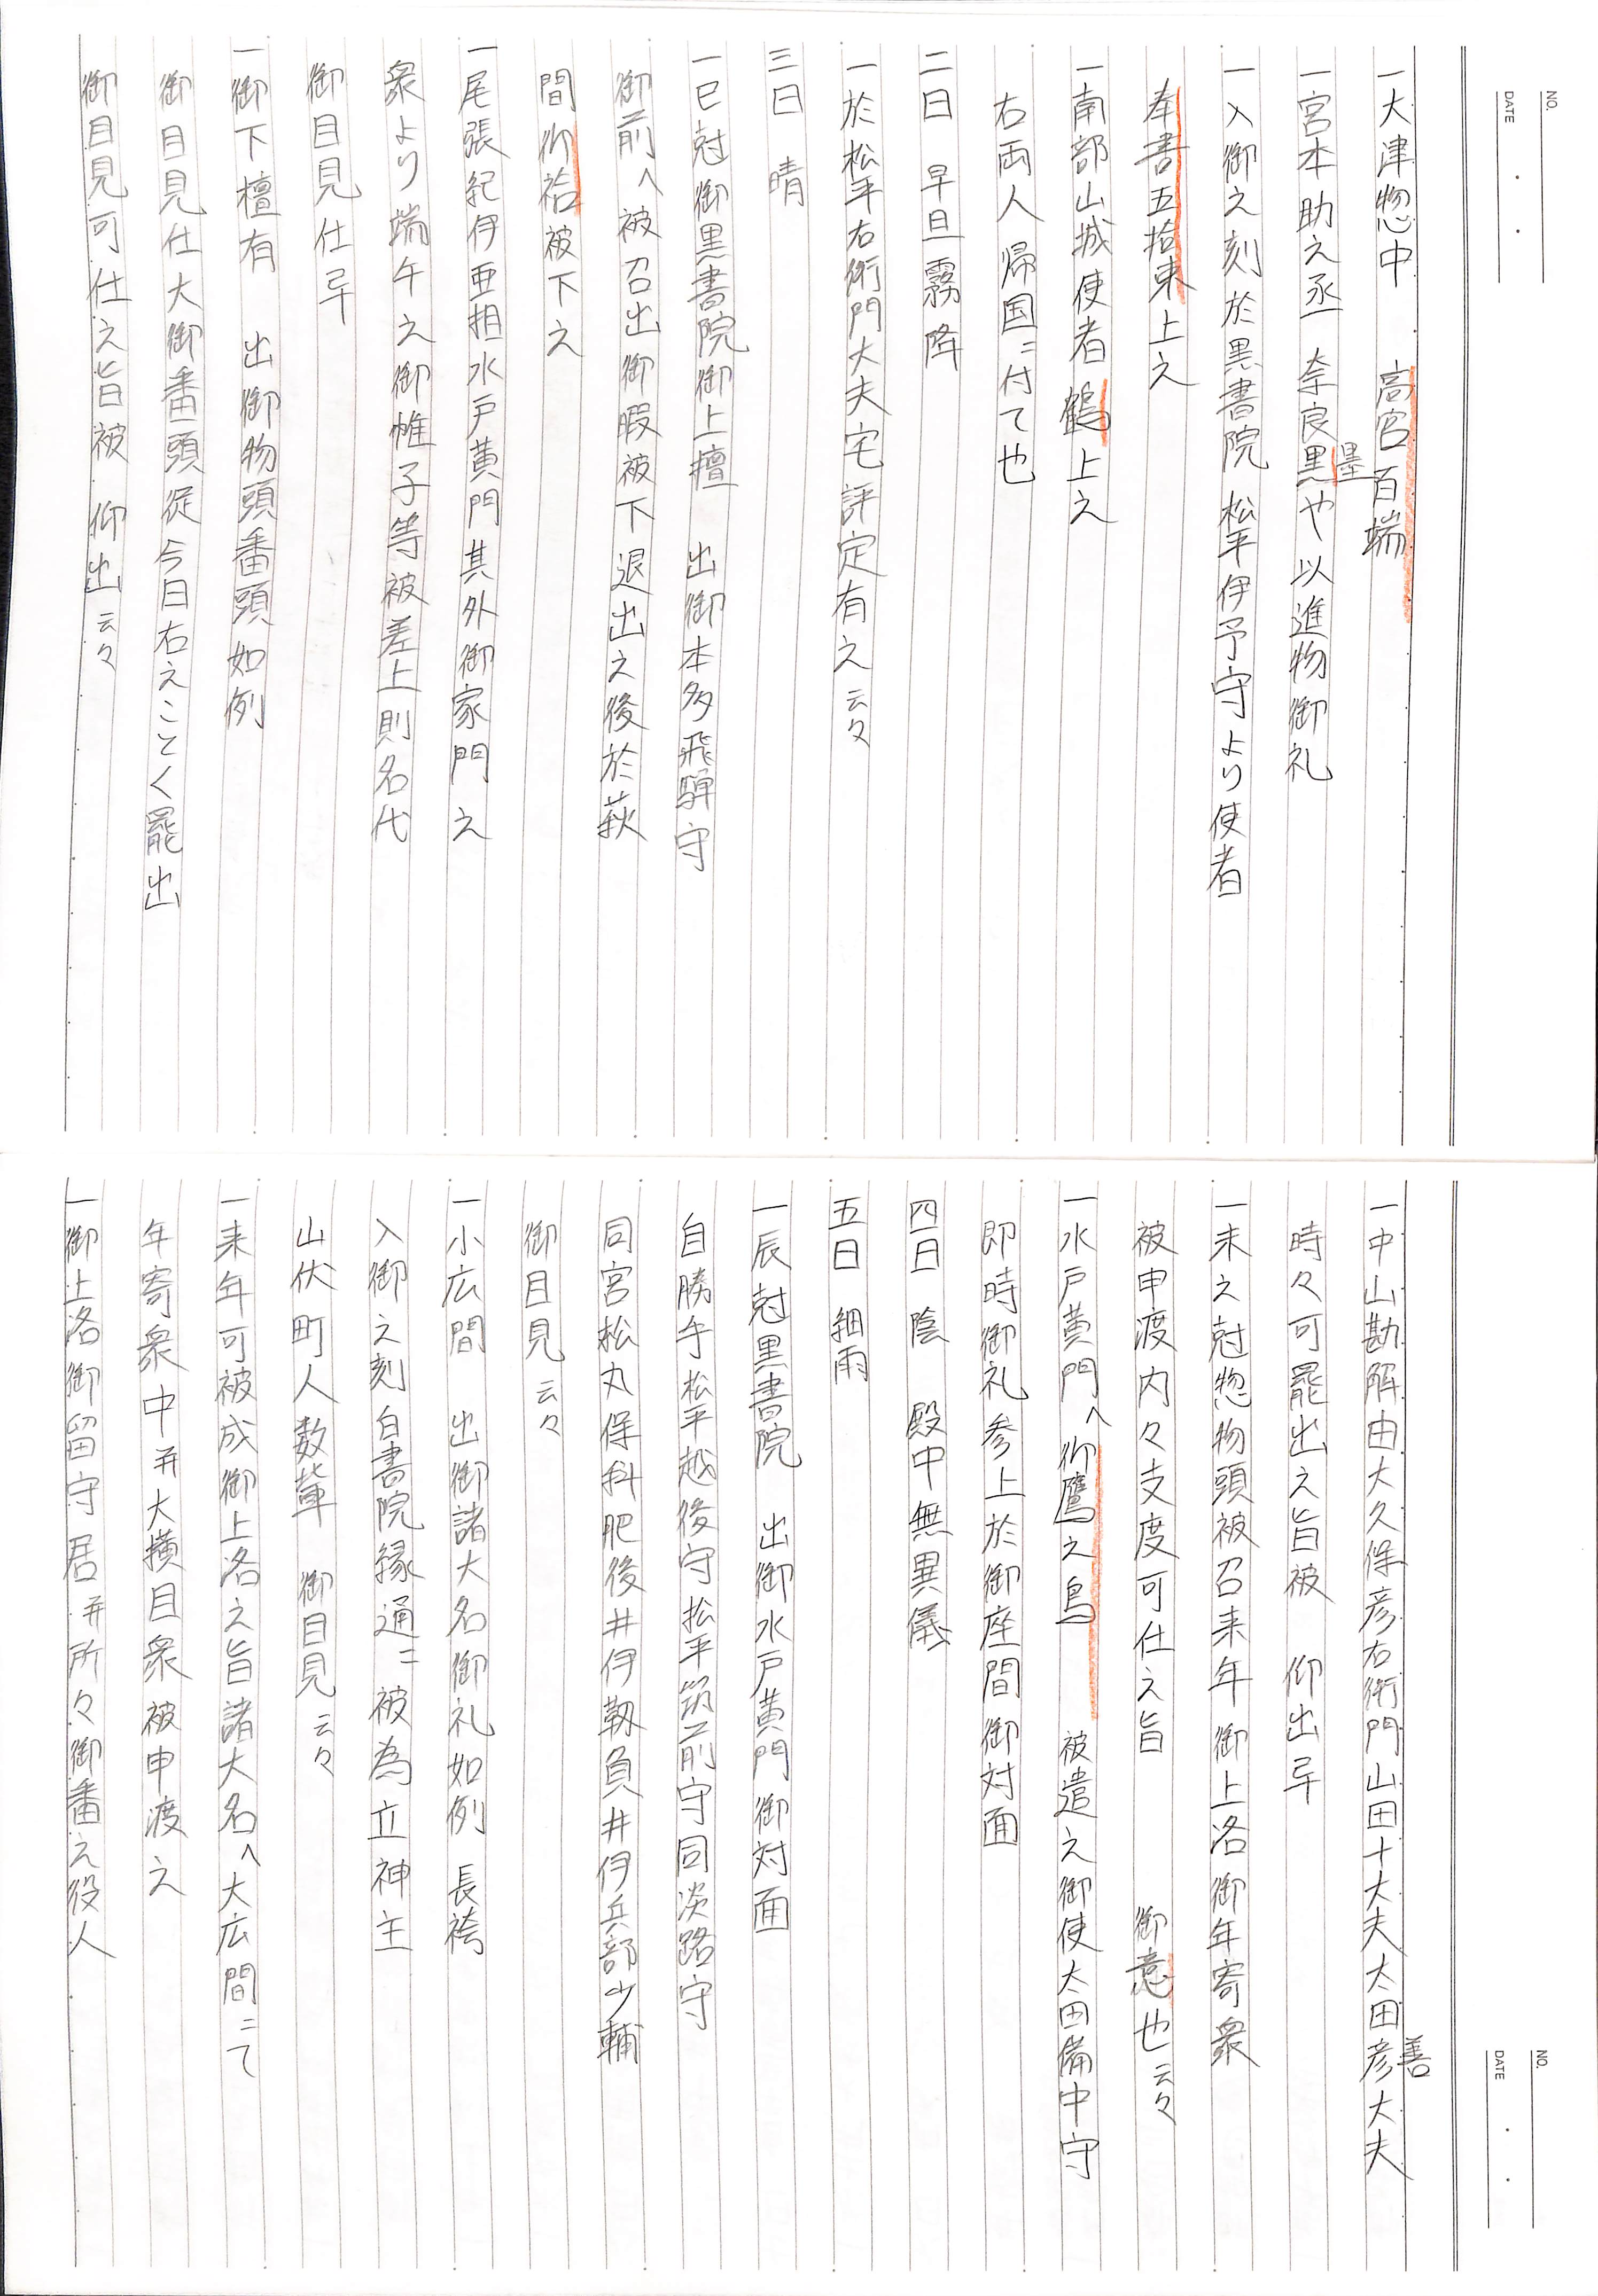 NO.
DATE
一大津惣中　高宮百端
一宮本助之丞　奈良黒や以進物御礼
墨
一入御之刻於黒書院　松平伊予守より使者
奉書五拾束上之
一南部山城使者　鶴上之
右両人　帰国ニ付て也
二日　早旦霧降
一於松平右衛門大夫宅評定有之云々
三日　晴
一巳尅御黒書院御上壇　出御本多飛騨守
御前へ被召出御暇被下退出之後於萩
間御袷被下之
一尾張紀伊亜相水戸黄門其外御家門之
衆より端午之御帷子等被差上則名代
御目見仕畢
一御下檀有　出御物頭番頭如例
御目見仕大御番頭従今日右之ことく罷出
御目見可仕之旨被　仰出云々
NO.
DATE
一中山勘解由大久保彦右衛門山田十大夫太田彦大夫
善
時々可罷出之旨被　仰出畢
一未之尅惣物頭被召来年御上洛御年寄衆
被申渡内々支度可仕之旨　御意也云々
一水戸黄門へ御鷹之鳥　被遣之御使太田備中守
即時御礼参上於御座間御対面
四日　陰　殿中無異儀
五日　細雨
一辰尅黒書院　出御水戸黄門御対面
自勝手松平越後守松平筑前守同淡路守
同宮松丸保科肥後井伊靱負井伊兵部少輔
御目見云々
一小広間　出御諸大名御礼如例　長袴
入御之刻白書院縁通ニ被為立神主
山伏町人数輩　御目見云々
一来年可被成御上洛之旨諸大名へ大広間ニて
年寄衆中并大横目衆被申渡之
一御上洛御留守居并所々御番之役人